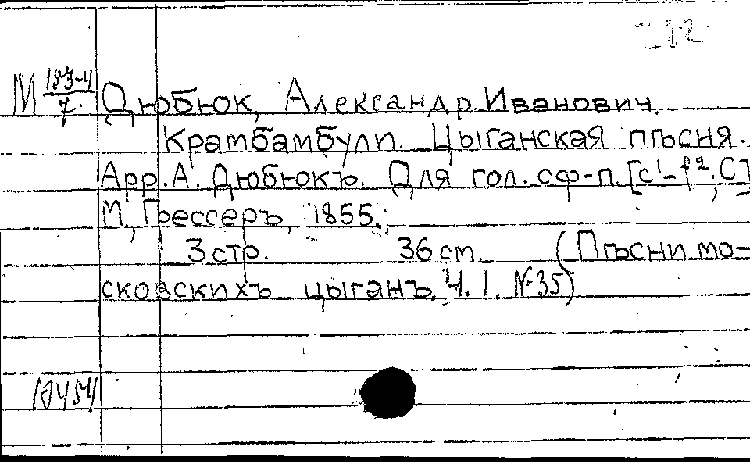 М 183-4/7 Дюбюк, Александр Иванович.
Крамбамбули. Цыганская пѣсня.
Арр. А. Дюбюкъ. Для гол. с ф-п. [c¹-f², C]
М., Грессеръ, 1855.
3 стр. 36 cm. (Пѣсни мо-
сковскихъ цыганъ. Ч. I. №35)